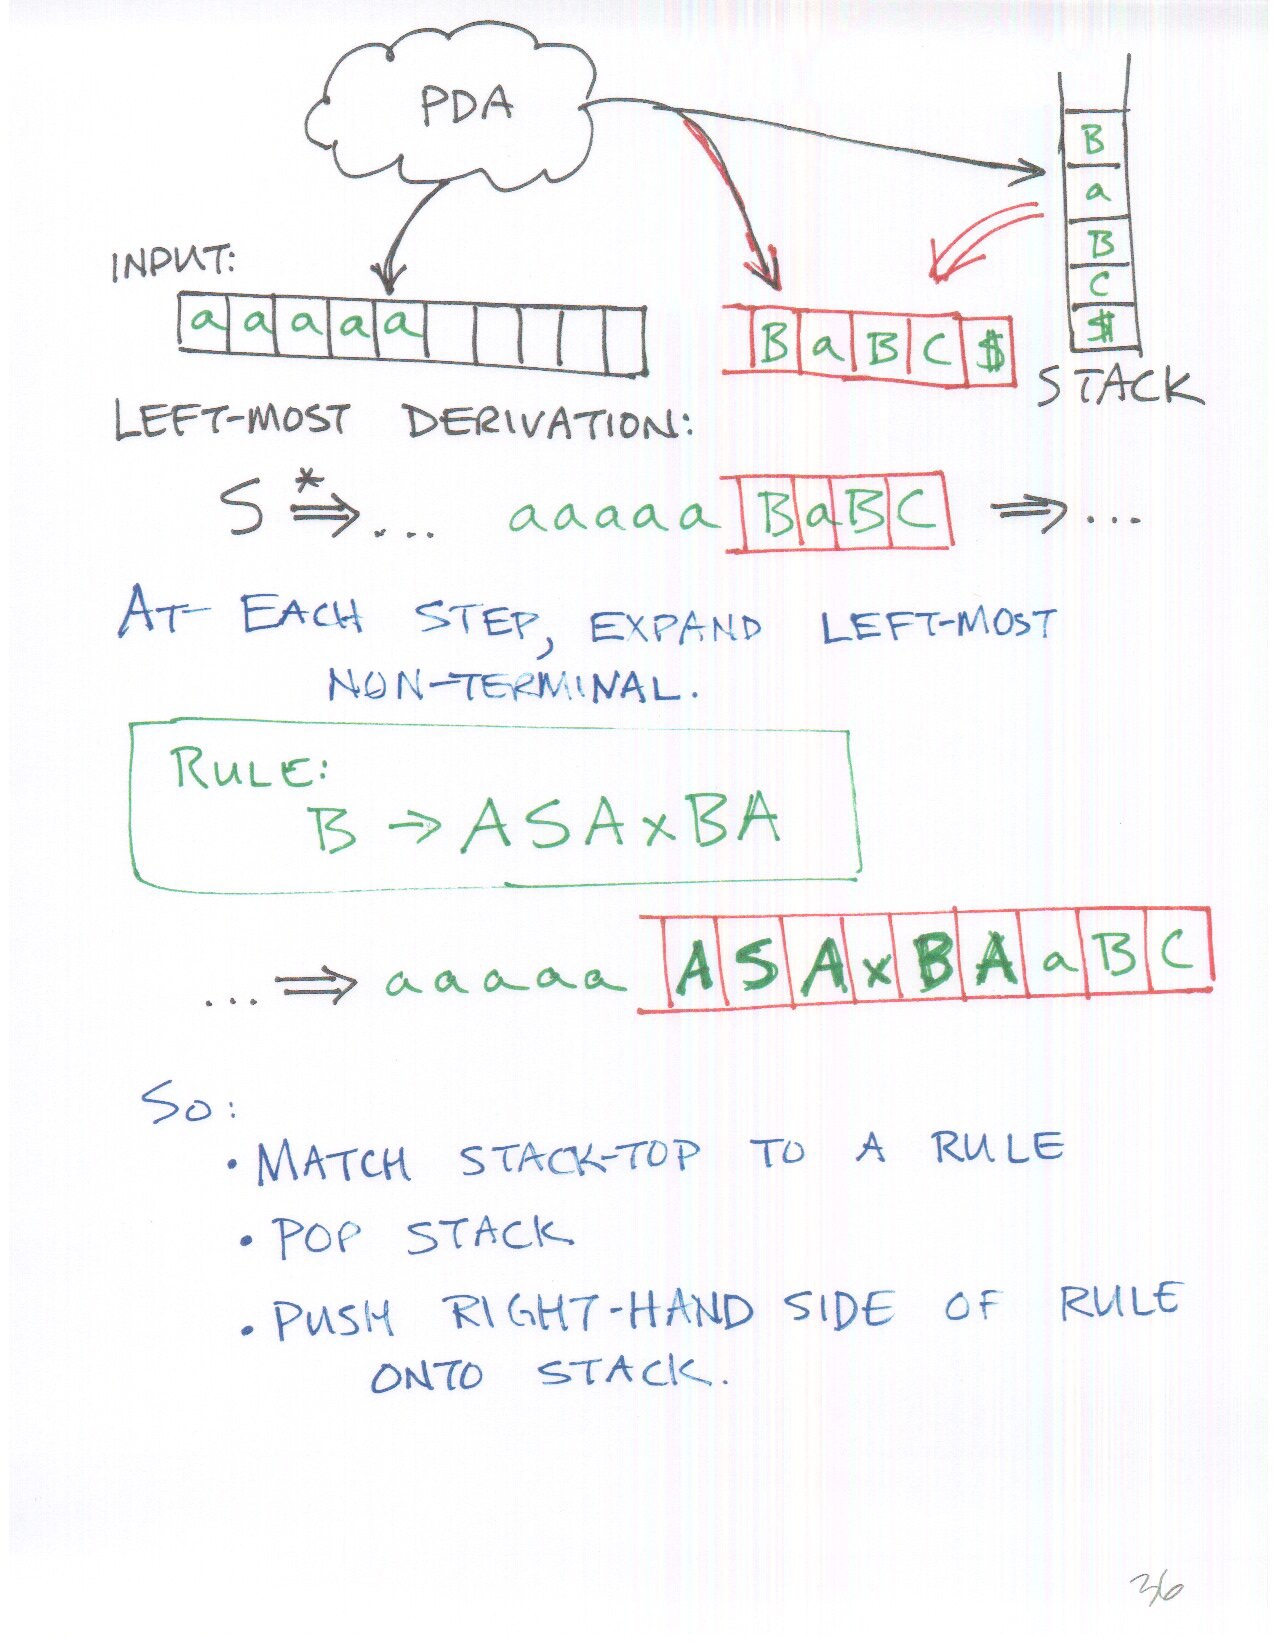 PDA
B
a
B
C
$
STACK
INPUT:
a a a a a
B a B C $
LEFT-MOST DERIVATION:
S *⇒ ... aaaaa BaBC ⇒ ...
AT EACH STEP, EXPAND LEFT-MOST
NON-TERMINAL.
RULE:
B → ASAxBA
... ⇒ aaaaa ASAxBAaBC
SO:
• MATCH STACK-TOP TO A RULE
• POP STACK
• PUSH RIGHT-HAND SIDE OF RULE
ONTO STACK.
36